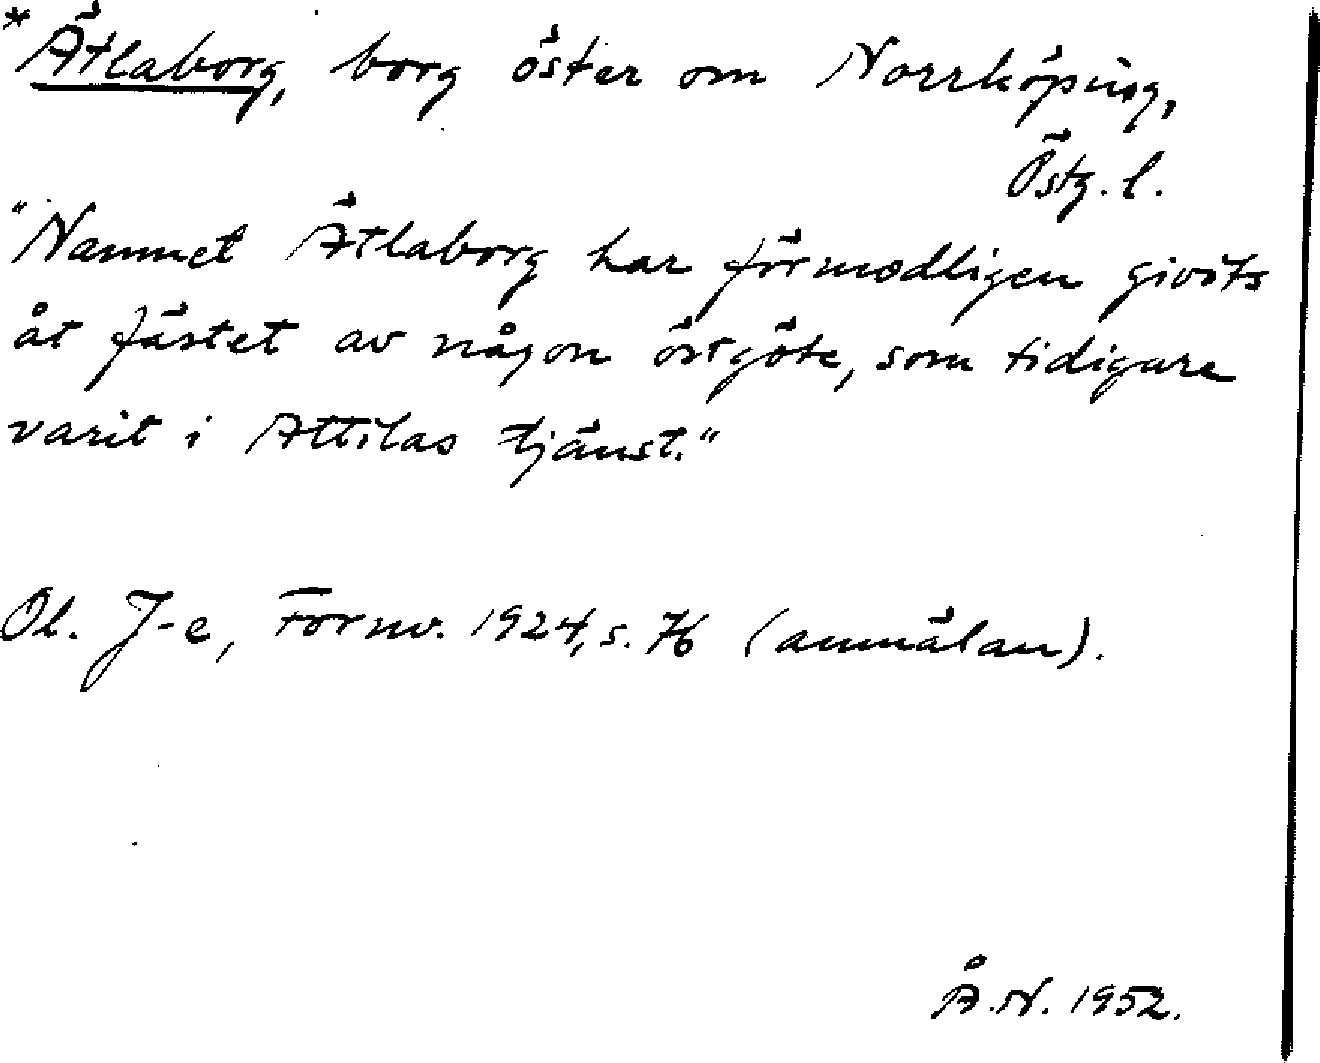 *Ätlaborg, borg öster om Norrköping,
Östg. l.
"Namnet Ätlaborg har förmodligen givits
åt fästet av någon östgöte, som tidigare
varit i Attilas tjänst."
Ol. J-e, Fornv. 1924, s. 76 (anmälan).
Å.N. 1952.